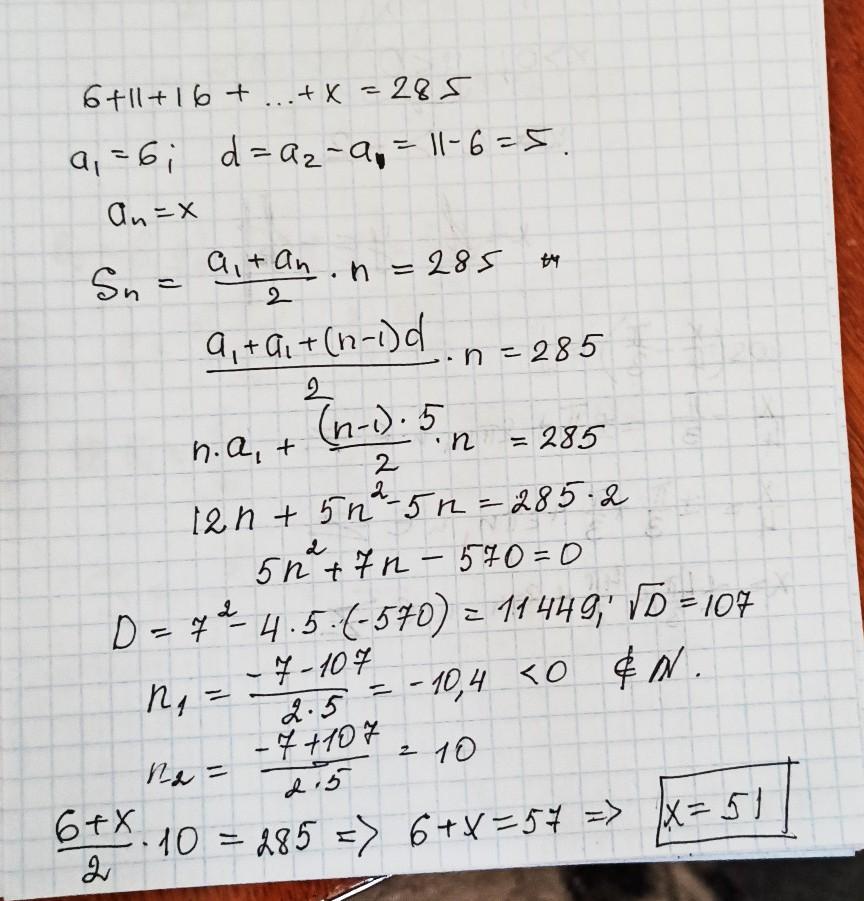 6+11+16+...+x=285
a₁=6; d=a₂-a₁=11-6=5.
aₙ=x
Sₙ = (a₁+aₙ)/2 · n = 285
(a₁+a₁+(n-1)d)/2 · n = 285
n·a₁ + ((n-1)·5)/2 · n = 285
12n + 5n²-5n = 285·2
5n²+7n-570=0
D = 7²-4·5·(-570) = 11449; √D = 107
n₁ = (-7-107)/(2·5) = -10,4 <0 ∉ N.
n₂ = (-7+107)/(2·5) = 10
(6+x)/2 · 10 = 285 => 6+x=57 => x=51